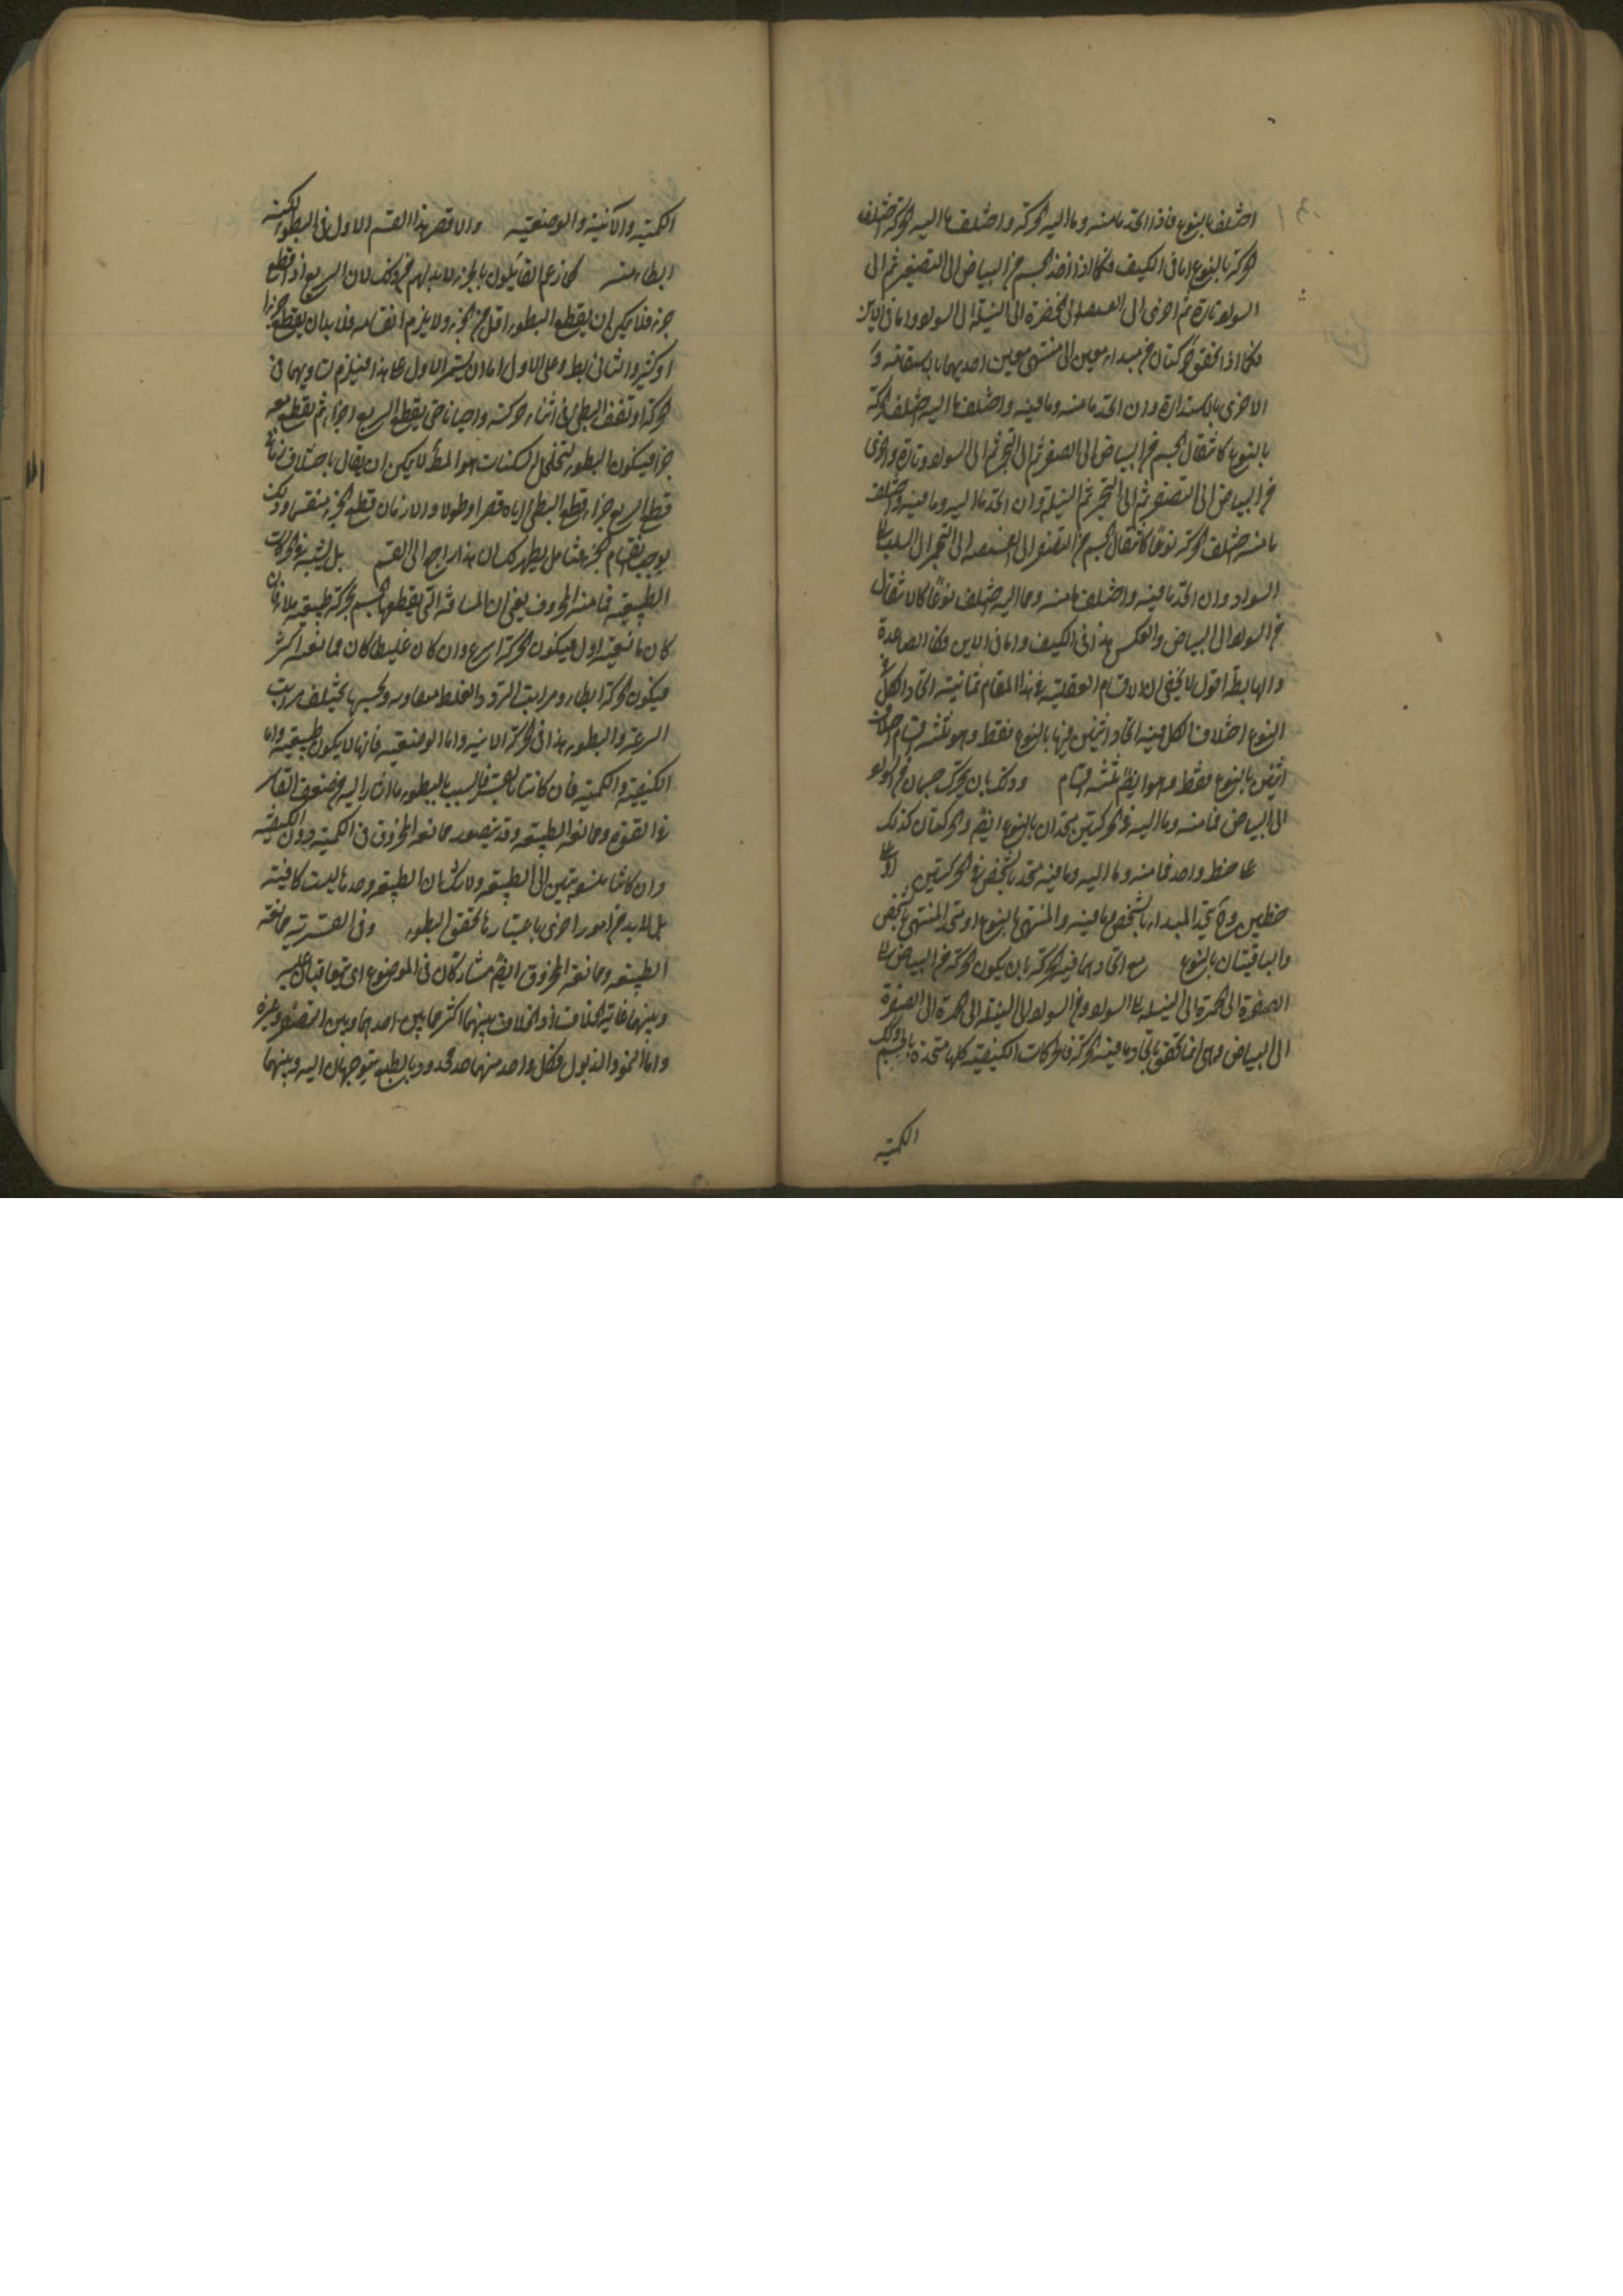 اختلف بالنوع فاذا اتحد ما منه وما اليه الحركة واختلف ما اليه الحركة تختلف
الحركة بالنوع اما فى الكيف فكما اذا اخذ الجسم من البياض الى التصفر ثم الى
السواد تارة ثم اخرى الى الى الخضرة الى النيلة الى السواد واما فى الاين
فكما اذا تحقق حركتان من مبداء معين الى منتهى معين احديهما بالاستقامة و
الاخرى بالاستدارة وان اتحد ما منه وما فيه واختلف ما اليه تختلف الحركة
بالنوع كانتقال الجسم من البياض الى الصفر ثم الى التحمر ثم الى السواد وتارة واخرى
من البياض الى التصفر ثم الى التحمر ثم النيلة وان اتحد ما اليه وما فيه واختلف
ما منه تختلف الحركة نوعا كانتقال الجسم من التصفر الى الى التحمر الى
السواد وان اتحد ما فيه واختلف ما منه وما اليه تختلف نوعا كالانتقال
من السواد الى البياض والعكس هذا فى الكيف واما فى الاين فكا الصاعدة
والهابطة اقول لا يخفى ان الاقسام العقلية فى هذا المقام ثمانية اتحاد الكل فى
النوع اختلاف الكل فيه اتحاد اثنين منها بالنوع فقط وهو ثلثة اقسام اختلاف
اثنين بالنوع فقط وهو ايضا ثلثة اقسام وذلك بان يتحرك جسمان من السواد
الى البياض فما منه وما اليه فى الحركتين متحدان بالنوع ايضا والحركتان كذلك
على خط واحد فما منه وما اليه وما فيه متحد بالشخص فى الحركتين او على
خطين وح يتحد المبداء بالشخص وما فيه والمنتهى بالنوع او يتحد المنتهى بالشخص
والباقيتان بالنوع مع اتحاد ما فيه الحركة بان يكون الحركة من البياض الى
الصفرة الى الحمرة الى النيلة الى السواد ومن السواد الى النيلة الى الحمرة الى الصفرة
الى البياض وهى انما تتحقق باتحاد ما فيه الحركة فالحركات الكيفية كلها متحدة بالجسم وكذلك
الكمية
الكمية والآينية والوضعية والا قصر هذا القسم الاول فى البطوء
ابطاء منه كما زعم القايلون بالجزء لا بد لهم من ذلك لان السريع اذا قطع
جزء فلا يمكن ان يقطع البطوء اقل من الجزء ولا يلزم انقسامه فلا بد ان يقطع جزءا
او اكثر والثانى بط وعلى الاول اما ان يستمر الاول على هذا فيلزم تساويهما فى
الحركة او تقف البطئ فى اثناء حركته واحيانا حتى يقطع السريع اجزاء ثم يقطع معه
جزء فيكون البطوء لتخلل السكنات هو المط لا يمكن ان يقال باختلاف زمان
قطع السريع جزءا وقطع البطئ اياه قصرا وطولا والا زمان قطع الجزء منقسما وذلك
يوجب انقسام الجزء فتامل يظهر لك ان هذا راجع الى القسم بل نسبة فى الحركات
الطبيعية ممانعة المخروق يعنى ان المسافة التى يقطعها الجسم بحركة طبيعية ملاء فان
كان مانعيته اول فيكون الحركة اسرع وان كان غليظا كان ممانعته اكثر
فيكون الحركة ابطاء ومراتب الرقة والغلظ متفاوتة وبحسبها يختلف مراتب
السرعة والبطوء هذا فى الحركة الاينية واما الوضعية فانها لا يكون طبيعية واما
الكيفية والكمية فان كانتا بالقسر فالسبب بالبطوء ما اشار اليه من ضعف القاسر
فى القوة وممانعة الطبيعة وقد يتصور ممانعة المخروق فى الكمية دون الكيفية
وان كانتا منسوبتين الى الطبيعة ولا شك ان الطبيعة وحدها ليست كافية
بل لا بد من امور اخرى باعتبارها يتحقق البطوء وفى القسرية ممانعة
الطبيعة وممانعة المخروق ايضا مشاركان فى الموضوع اى يتعاقبان عليه
وبينهما غاية الخلاف اذ الخلاف بينهما اكثر مما بين احدهما وبين التصفر وغيره
واما النمو والذبول فكل واحد منهما حد محدود بالطبع يتوجهان اليه وبينهما